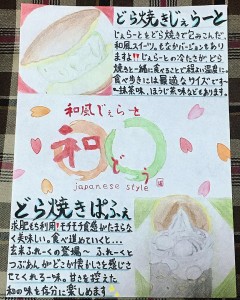 どら焼きじぇらーと
じぇらーとをどら焼きで包みこんだ、
和風スイーツ。もなかバージョンもあり
ますよ!!じぇらーとの冷たさがどら
焼きと一緒に食べることで程よい温度に…
食べ歩きには最適なサイズです
抹茶味、ほうじ茶味などもあります。
和風じぇらーと
和どう
japanese style
どら焼きぱふぇ
求肥もち利用!!モチモチ食感がたまらな
く美味しい。食べ進めていくと…
玄米ふれーくの登場〜ふれーくと
つぶあんがどこか懐かしさを感じさ
せてくれる一味。甘さを控えた
和の味を存分に楽しめます